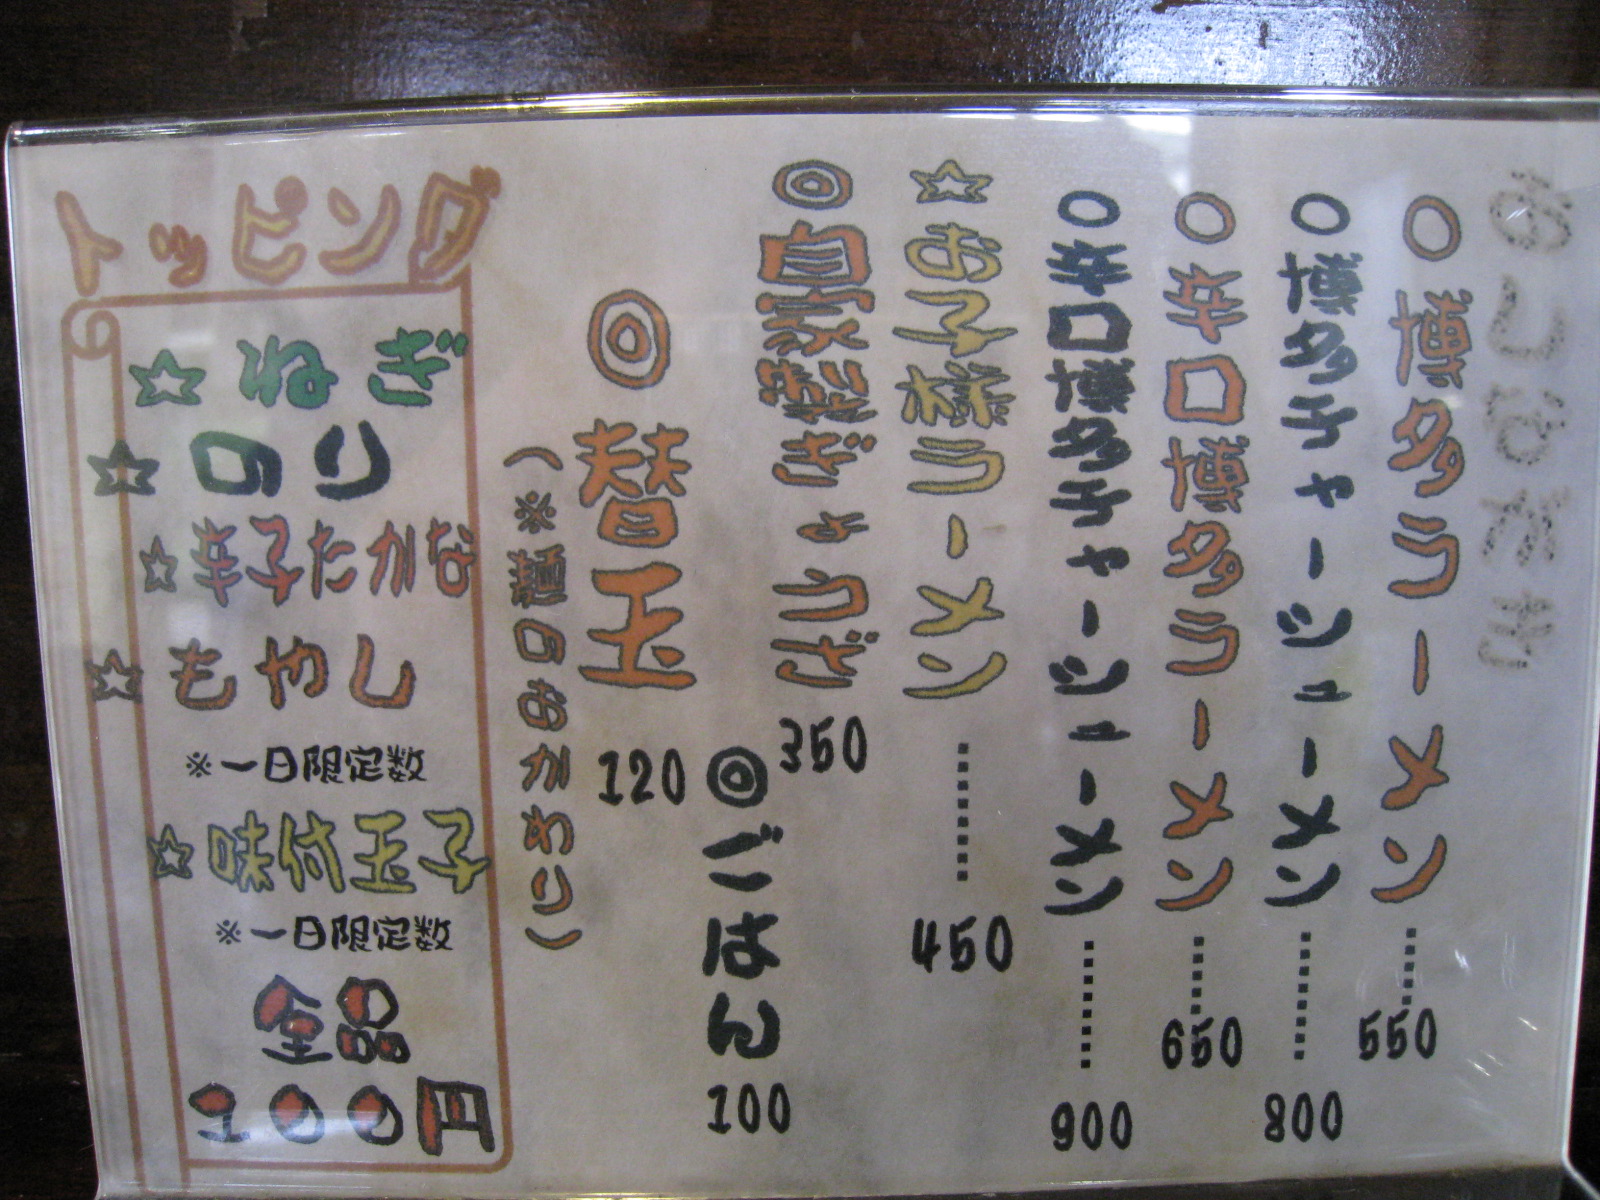 ○博多ラーメン……550
○博多チャーシューメン……800
○辛口博多ラーメン……650
○辛口博多チャーシューメン……900
☆お子様ラーメン……450
◎自家製ぎょうざ 350
◎ごはん 100
◎替玉 120
(※麺のおかわり)
トッピング
☆ねぎ
☆のり
☆辛子たかな
☆もやし
※一日限定数
☆味付玉子
※一日限定数
全品
100円